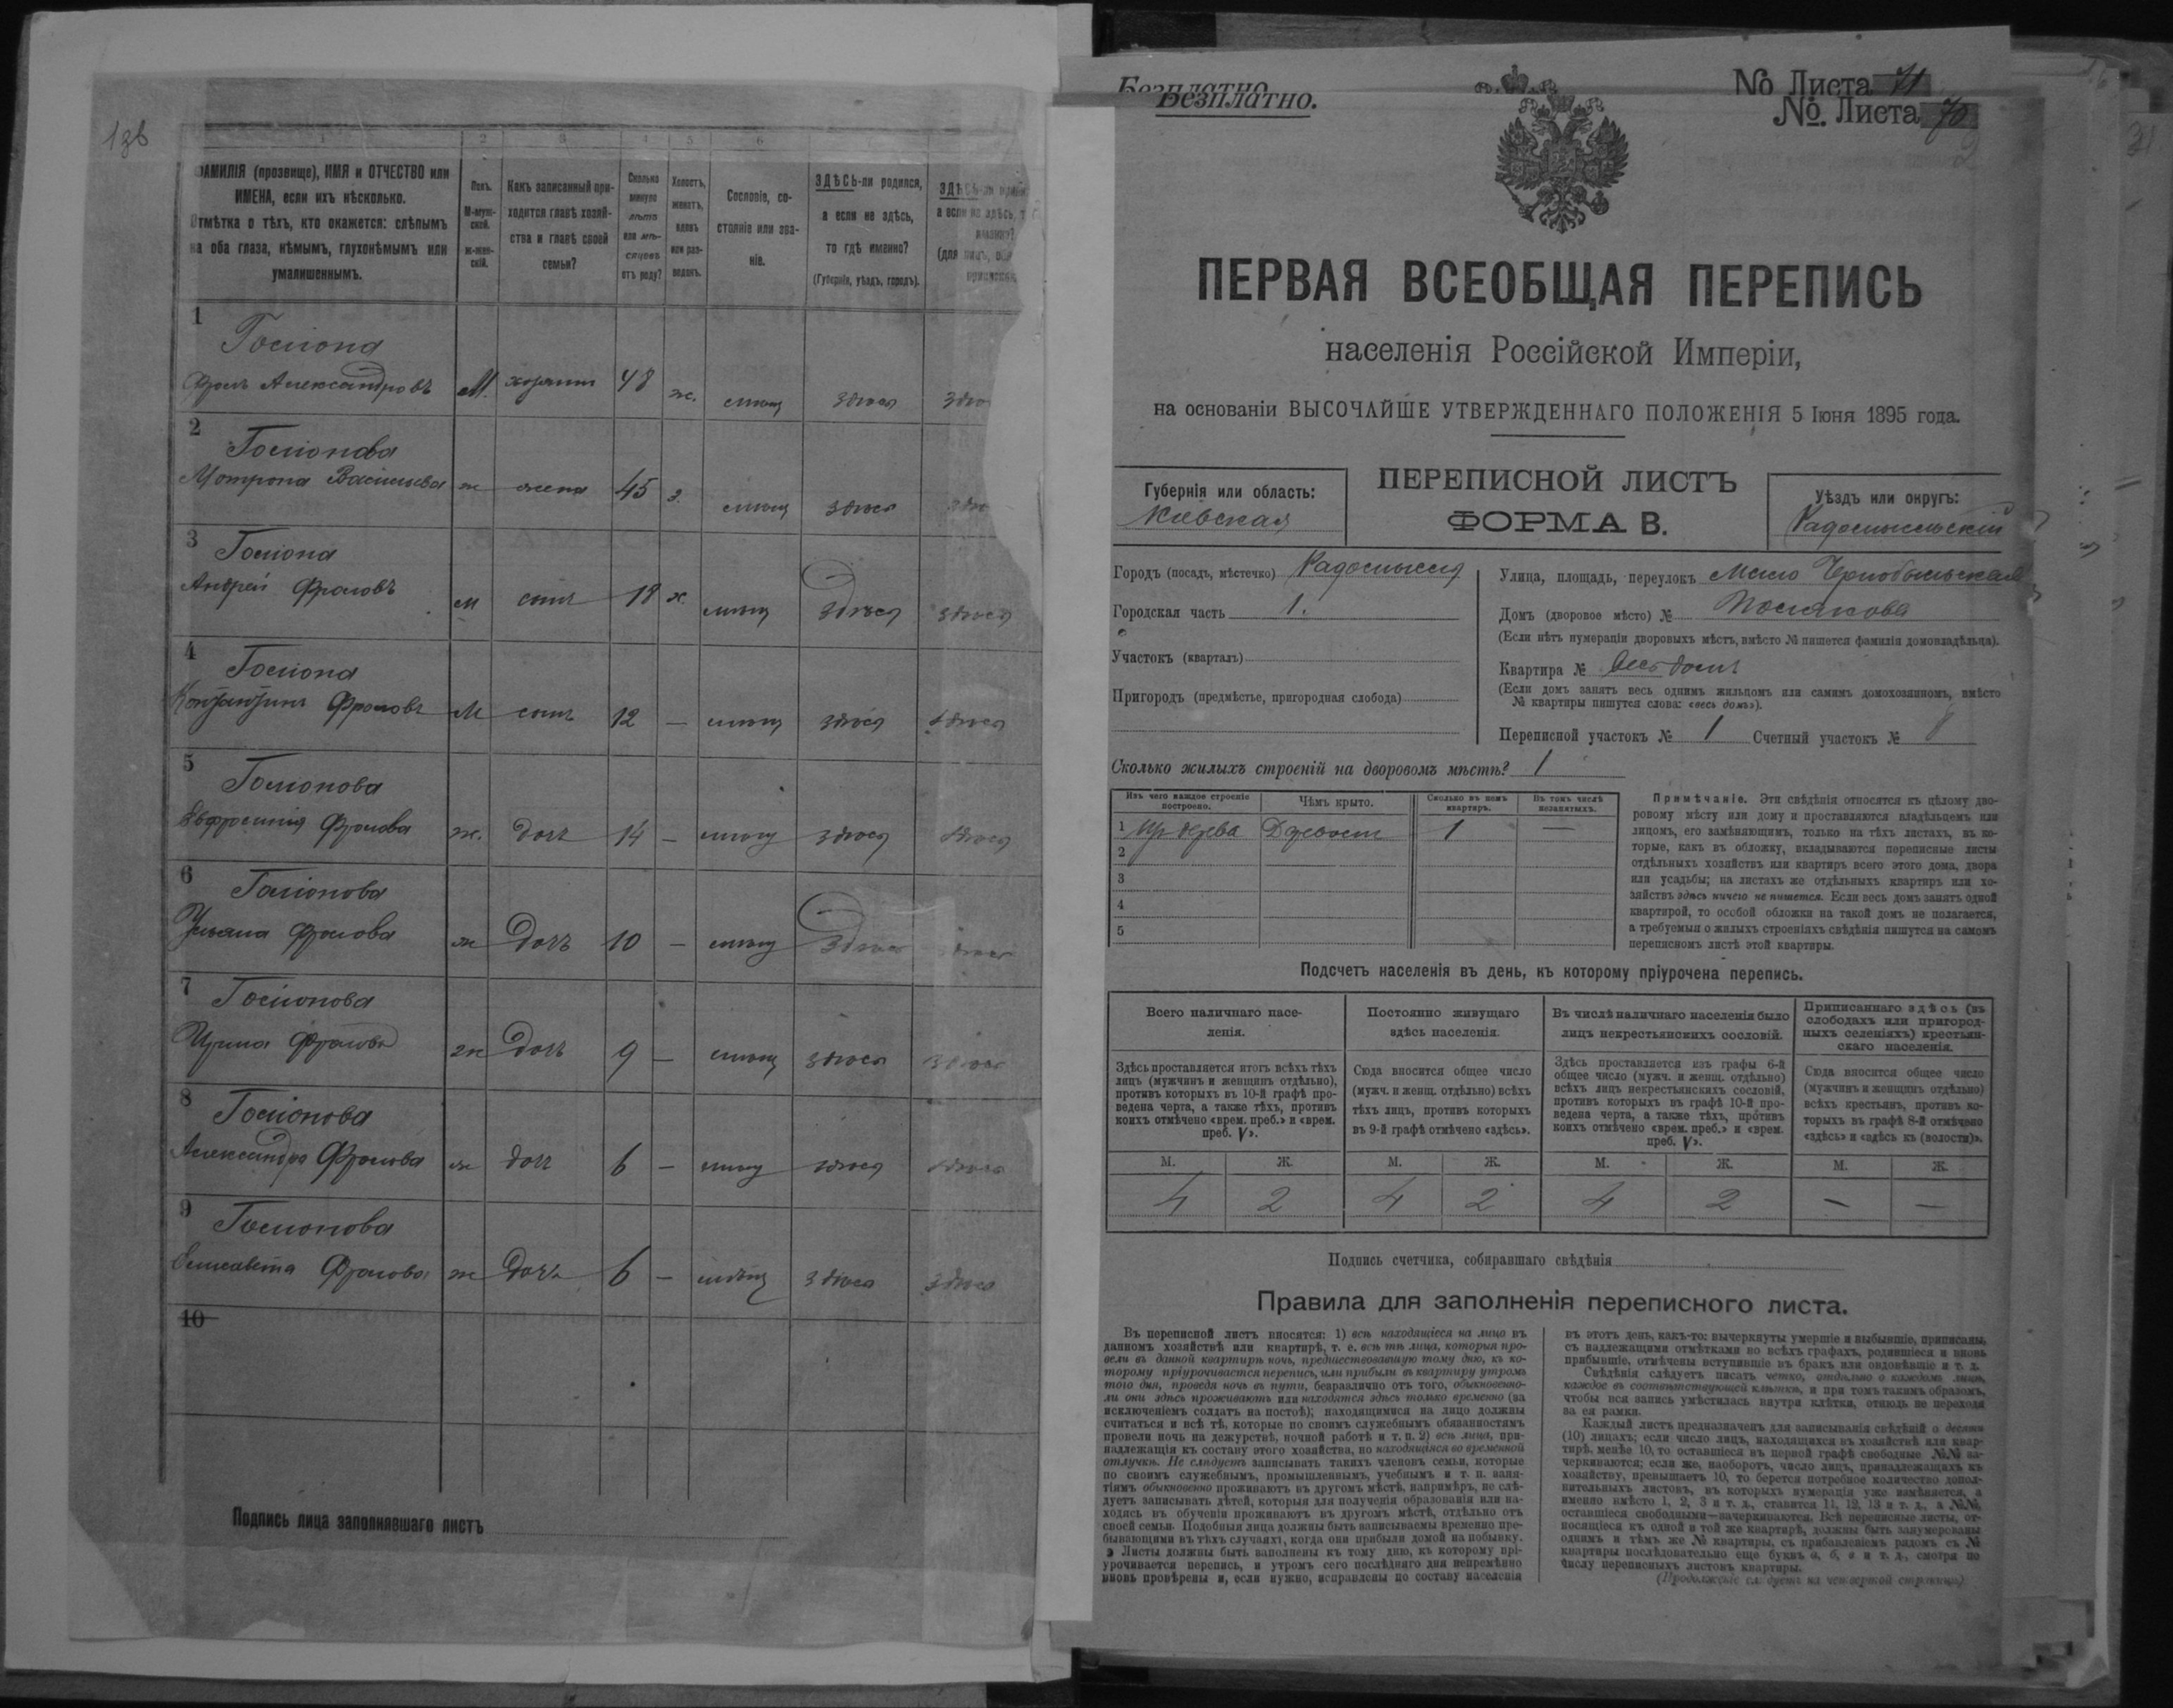 136
1 2 3 4 5 6
ФАМИЛІЯ (прозвище), ИМЯ и ОТЧЕСТВО или
ИМЕНА, если ихъ нѣсколько.
Отмѣтка о тѣхъ, кто окажется: слѣпымъ
на оба глаза, нѣмымъ, глухонѣмымъ или
умалишеннымъ.
Полъ.
М-муж-
ской.
ж-жен-
скій.
Какъ записанный при-
ходится главѣ хозяй-
ства и главѣ своей
семьи?
Сколько
минуло
лѣтъ
или мѣ-
сяцевъ
отъ роду?
Холостъ,
женатъ,
вдовъ
или раз-
веденъ.
Сословіе, со-
стояніе или зва-
ніе.
ЗДѢСЬ-ли родился,
а если не здѣсь,
то гдѣ именно?
(Губернія, уѣздъ, городъ).
ЗДѢСЬ-ли
а если не здѣсь,
1
Фролъ Александровъ М. хозяинъ 48 ж. здѣсь
2
Мотрона Васильева ж жена 45 з. здѣсь
3
Андрей Фроловъ м сынъ 18 х здѣсь здѣсь
4
Фроловъ М сынъ 12 — здѣсь здѣсь
5
Евфросинія Фролова ж. дочь 14 — здѣсь здѣсь
6
Ульяна Фролова ж дочь 10 — здѣсь здѣсь
7
Ирина Фролова ж дочь 9 — здѣсь здѣсь
8
Александра Фролова ж дочь 6 — здѣсь здѣсь
9
Елисавета Фролова ж дочь 6 — здѣсь здѣсь
10
Подпись лица заполнявшаго листъ
Безплатно. № Листа 71
Безплатно. №. Листа 70
ПЕРВАЯ ВСЕОБЩАЯ ПЕРЕПИСЬ
населенія Россійской Имперіи,
на основаніи ВЫСОЧАЙШЕ УТВЕРЖДЕННАГО ПОЛОЖЕНІЯ 5 Іюня 1895 года.
Губернія или область:
Кіевская
ПЕРЕПИСНОЙ ЛИСТЪ
ФОРМА В.
Уѣздъ или округъ:
Радомысльскій
Городъ (посадъ, мѣстечко) Радомысль
Городская часть 1.
Участокъ (кварталъ)
Пригородъ (предмѣстье, пригородная слобода)
Улица, площадь, переулокъ Мало Чернобыльская
Домъ (дворовое мѣсто) № Полякова
(Если нѣтъ нумераціи дворовыхъ мѣстъ, вмѣсто № пишется фамилія домовладѣльца).
Квартира № Весь домъ
(Если домъ занятъ весь однимъ жильцомъ или самимъ домохозяиномъ, вмѣсто
№ квартиры пишутся слова: «весь домъ»).
Переписной участокъ № 1 Счетный участокъ №
Сколько жилыхъ строеній на дворовомъ мѣстѣ? 1
Изъ чего каждое строеніе
построено.
Чѣмъ крыто.
Сколько въ немъ
квартиръ.
Въ томъ числѣ
незанятыхъ.
1 Из дерева Деревом 1 —
2
3
4
5
Примѣчаніе. Эти свѣдѣнія относятся къ цѣлому дво-
ровому мѣсту или дому и проставляются владѣльцемъ или
лицомъ, его замѣняющимъ, только на тѣхъ листахъ, въ ко-
торые, какъ въ обложку, вкладываются переписные листы
отдѣльныхъ хозяйствъ или квартиръ всего этого дома, двора
или усадьбы; на листахъ же отдѣльныхъ квартиръ или хо-
зяйствъ здѣсь ничего не пишется. Если весь домъ занятъ одной
квартирой, то особой обложки на такой домъ не полагается,
а требуемыя о жилыхъ строеніяхъ свѣдѣнія пишутся на самомъ
переписномъ листѣ этой квартиры.
Подсчетъ населенія въ день, къ которому пріурочена перепись.
Всего наличнаго насе-
ленія.
Постоянно живущаго
здѣсь населенія.
Въ числѣ наличнаго населенія было
лицъ некрестьянскихъ сословій.
Приписаннаго здѣсь (въ
слободахъ или пригород-
ныхъ селеніяхъ) крестьян-
скаго населенія.
Здѣсь проставляется итогъ всѣхъ тѣхъ
лицъ (мужчинъ и женщинъ отдѣльно),
противъ которыхъ въ 10-й графѣ про-
ведена черта, а также тѣхъ, противъ
коихъ отмѣчено «врем. преб.» и «врем.
преб. V».
Сюда вносится общее число
(мужч. и женщ. отдѣльно) всѣхъ
тѣхъ лицъ, противъ которыхъ
въ 9-й графѣ отмѣчено «здѣсь».
Здѣсь проставляется изъ графы 6-й
общее число (мужч. и женщ. отдѣльно)
всѣхъ лицъ некрестьянскихъ сословій,
противъ которыхъ въ графѣ 10-й про-
ведена черта, а также тѣхъ, противъ
коихъ отмѣчено «врем. преб.» и «врем.
преб. V».
Сюда вносится общее число
(мужчинъ и женщинъ отдѣльно)
всѣхъ крестьянъ, противъ ко-
торыхъ въ графѣ 8-й отмѣчено
«здѣсь» и «здѣсь къ (волости)».
М. Ж. М. Ж. М. Ж. М. Ж.
4 2 4 2 4 2 — —
Подпись счетчика, собиравшаго свѣдѣнія
Правила для заполненія переписного листа.
Въ переписной листъ вносятся: 1) всѣ находящіеся на лицо въ
данномъ хозяйствѣ или квартирѣ, т. е. всѣ тѣ лица, которыя про-
вели въ данной квартирѣ ночь, предшествовавшую тому дню, къ ко-
торому пріурочивается перепись, или прибыли въ квартиру утромъ
того дня, проведя ночь въ пути, безразлично отъ того, обыкновенно-
ли они здѣсь проживаютъ или находятся здѣсь только временно (за
исключеніемъ солдатъ на постоѣ); находящимися на лицо должны
считаться и всѣ тѣ, которые по своимъ служебнымъ обязанностямъ
провели ночь на дежурствѣ, ночной работѣ и т. п. 2) всѣ лица, при-
надлежащія къ составу этого хозяйства, но находящіяся во временной
отлучкѣ. Не слѣдуетъ записывать такихъ членовъ семьи, которые
по своимъ служебнымъ, промышленнымъ, учебнымъ и т. п. заня-
тіямъ обыкновенно проживаютъ въ другомъ мѣстѣ, напримѣръ, не слѣ-
дуетъ записывать дѣтей, которыя для полученія образованія или на-
ходясь въ обученіи проживаютъ въ другомъ мѣстѣ, отдѣльно отъ
своей семьи. Подобныя лица должны быть записываемы временно пре-
бывающими въ тѣхъ случаяхъ, когда они прибыли домой на побывку.
Листы должны быть заполнены къ тому дню, къ которому прі-
урочивается перепись, и утромъ сего послѣдняго дня непремѣнно
вновь провѣрены и, если нужно, исправлены по составу населенія
въ этотъ день, какъ-то: вычеркнуты умершіе и выбывшіе, приписаны,
съ надлежащими отмѣтками во всѣхъ графахъ, родившіеся и вновь
прибывшіе, отмѣчены вступившіе въ бракъ или овдовѣвшіе и т. д.
Свѣдѣнія слѣдуетъ писать четко, отдѣльно о каждомъ лицѣ,
каждое въ соотвѣтствующей клѣткѣ, и при томъ такимъ образомъ,
чтобы вся запись умѣстилась внутри клѣтки, отнюдь не переходя
за ея рамки.
Каждый листъ предназначенъ для записыванія свѣдѣній о десяти
(10) лицахъ; если число лицъ, находящихся въ хозяйствѣ или квар-
тирѣ, менѣе 10, то оставшіеся въ первой графѣ свободные №№ за-
черкиваются; если же, наоборотъ, число лицъ, принадлежащихъ къ
хозяйству, превышаетъ 10, то берется потребное количество допол-
нительныхъ листовъ, въ которыхъ нумерація уже измѣняется, а
именно вмѣсто 1, 2, 3 и т. д., ставится 11, 12, 13 и т. д., а №№,
оставшіеся свободными—зачеркиваются. Всѣ переписные листы, от-
носящіеся къ одной и той же квартирѣ, должны быть занумерованы
однимъ и тѣмъ же № квартиры, съ прибавленіемъ рядомъ съ №
квартиры послѣдовательно еще буквъ а, б, в и т. д., смотря по
числу переписныхъ листовъ квартиры.
(Продолженіе слѣдуетъ на четвертой страницѣ)